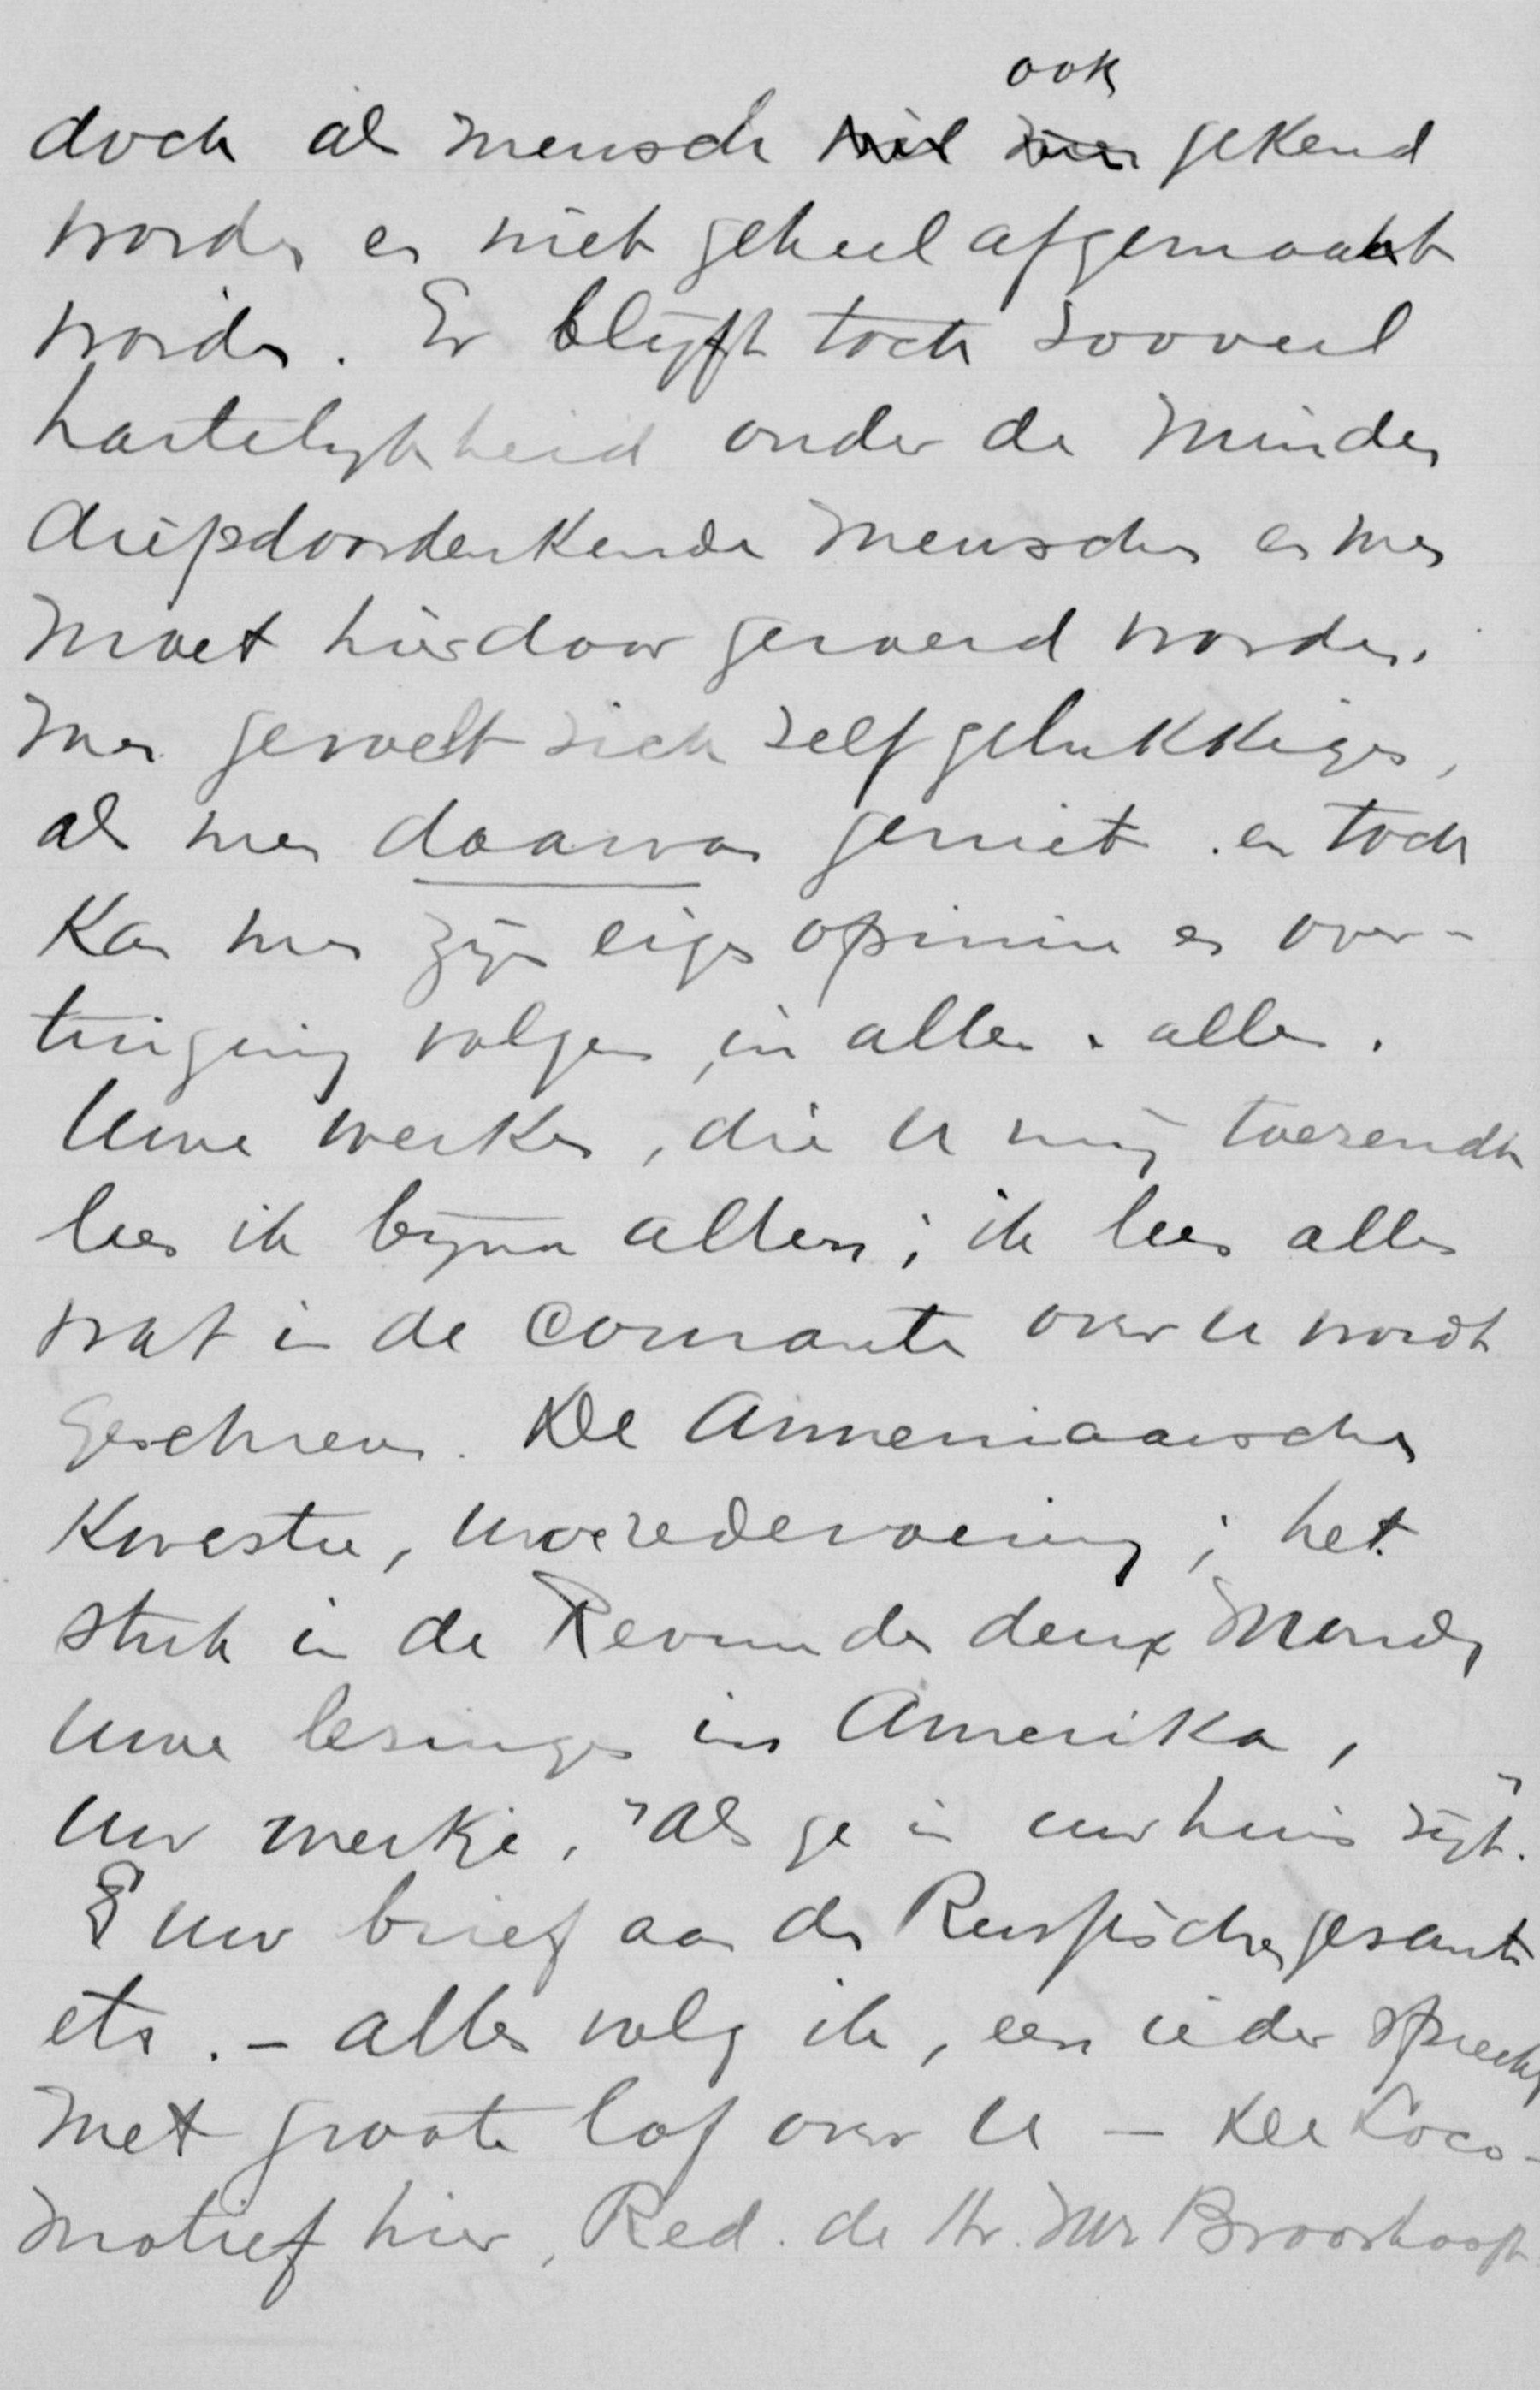 ook
doch als mensch wil men gekend
worden en niet geheel afgemaakt
worden. Er blijft toch zooveel
hartelijkheid onder de minder
diepdoordenkende menschen en men
moet hierdoor geroerd worden.
Men gevoelt zich zelf gelukkiger,
als men daarvan geniet. en toch
kan men zijn eigen opinie en over-
tuiging volgen, in alles. alles.
Uwe werken, die U mij toezendt
lees ik bijna allen; ik lees alles
wat in de couranten over U wordt
geschreven. De Armeniaansche
Kwestie, uwe redevoering; het
stuk in de Revue des deux Mondes
Uwe lezingen in Amerika,
Uw werkje, "Als ge in uw huis zijt."
& uw brief aan den Russischen gezant
etc. - alles volg ik, een ieder spreekt
met groote lof over U - De Loco-
motief hier, Red. de Hr. Mr Brooshooft